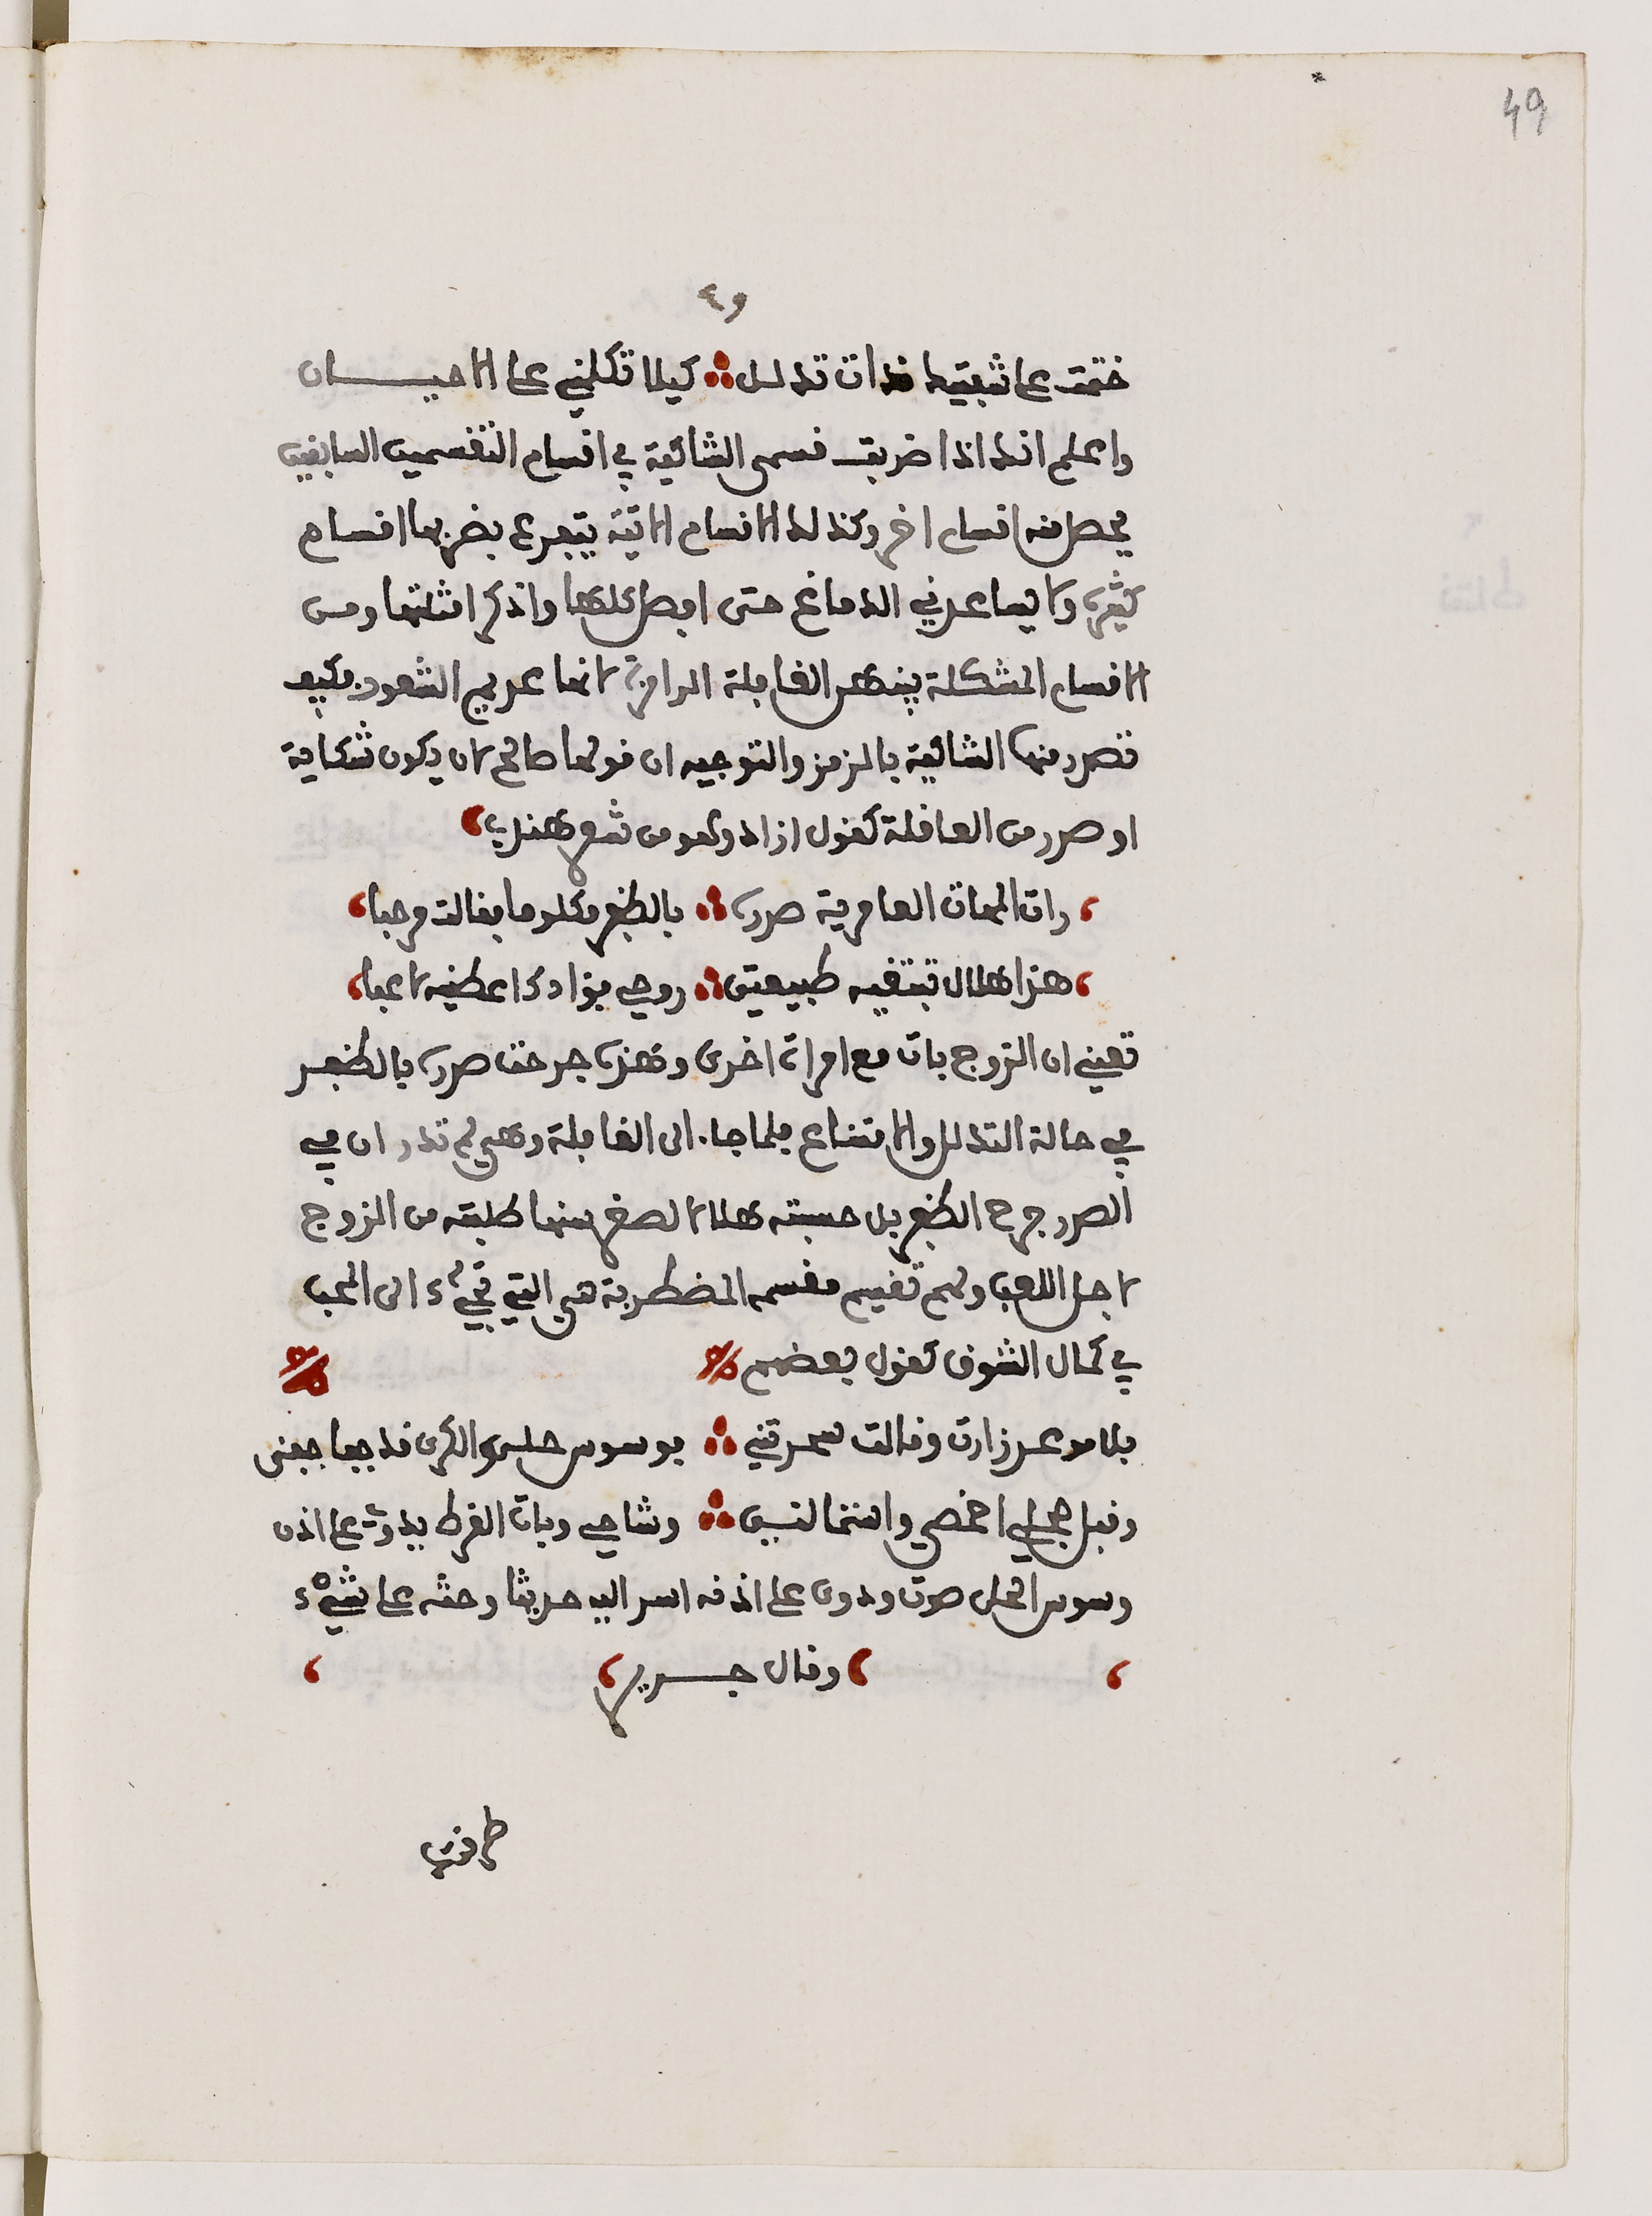 49
٤٩
ختمت على شفتيك ذات تدلل كيلا تكلمني على الاحيان
واعلم انك اذا ضربت قسمى الشاكية في اقسام التقسمين السابقين
يحصل منه اقسام اخر وكذلك الاقسام الاتية يتفرع بضربها اقسام
كثيرة ولا يساعدني الدماغ حتى افصل كلها واذكر امثلتها ومن
الاقسام المشكلة بينهن الغافلة لانها عديم الشعور فكيف
تصدر منها الشاكية بالرمز والتوجيه ان قولها صالح لان يكون شكاية
او صدر من العاقلة كقول ازاد وهو من شعر هندي
رات المهاة العامرية صدره بالظفر مكلوما فقالت مرحبا
هذا هلال تبتغيه طبيعتي روحي فؤادك اعطنيه لاعبا
تعني ان الزوج بات مع امراة اخرى وهذه جرحت صدره بالظفر
في حالة التدلل والامتناع فلما جاء الى الغافلة وهي لم تدر ان في
الصدر جرح الظفر بل حسبته هلالا لصغر سنها طلبته من الزوج
لاجل اللعب ولهم تقسيم مقسمه المضطربة هي التي تجيء الى المحب
في كمال الشوق كقول بعضهم
بلا موعد زارت وقالت سحرتني بوسوس حلي والكرى قد جفا جفني
وقبل حجلي اخمصي وانتما لنسبن وشاحي وبات القرط يدوي على اذن
وسوس الحلي صوت ودوى على اذنه اسر اليه حديثا وحثه على شيء
وقال جرير
طرقتك